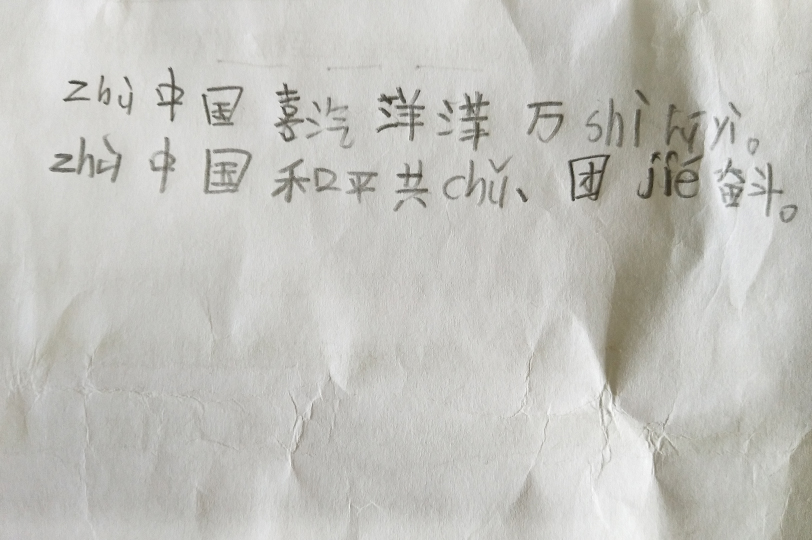 zhù中国喜汽洋洋万shì rú yì。
zhù中国和平共chǔ、团jié奋斗。